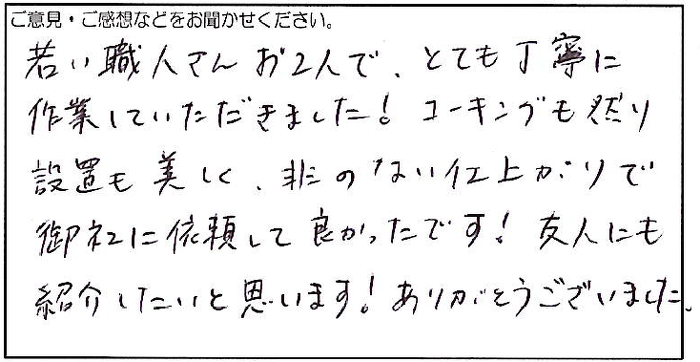 ご意見・ご感想などをお聞かせください。
若い職人さんお2人で、とても丁寧に
作業していただきました！コーキングも然り
設置も美しく、非のない仕上がりで
御社に依頼して良かったです！友人にも
紹介したいと思います！ありがとうございました。